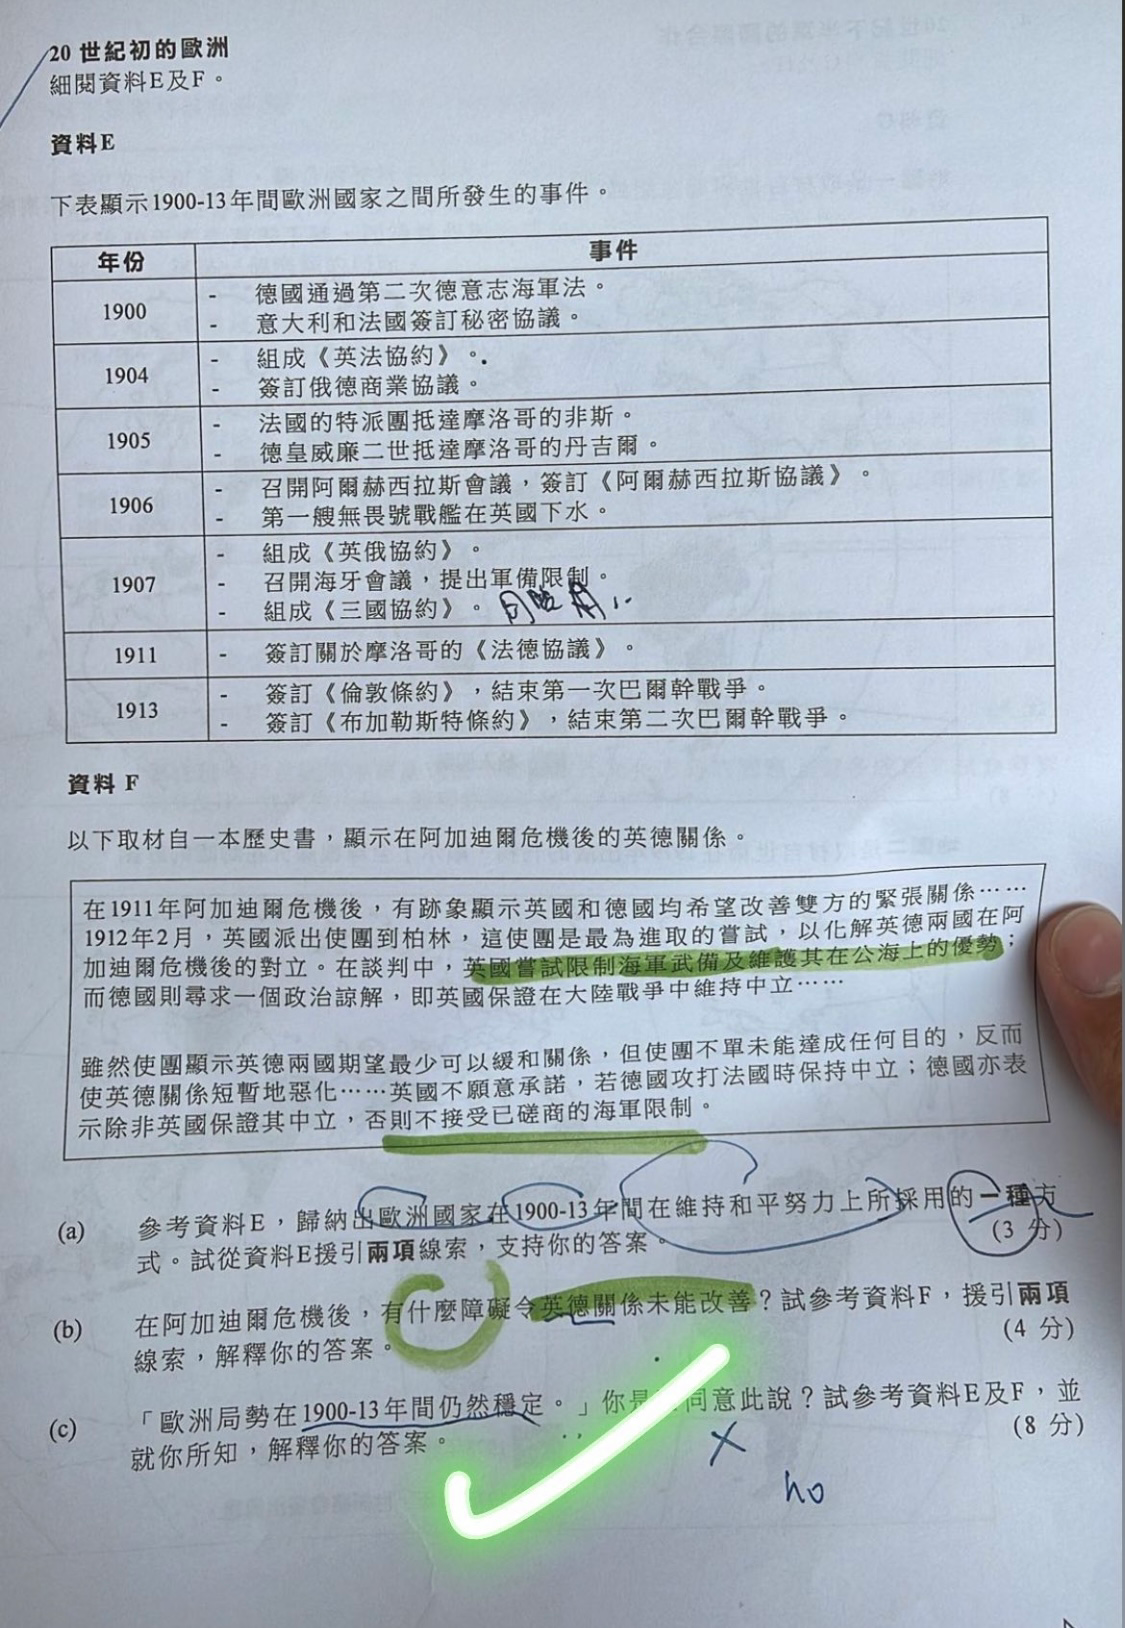 20 世紀初的歐洲
細閱資料E及F。
資料E
下表顯示1900-13年間歐洲國家之間所發生的事件。
年份 事件
1900 - 德國通過第二次德意志海軍法。
- 意大利和法國簽訂秘密協議。
1904 - 組成《英法協約》。
- 簽訂俄德商業協議。
1905 - 法國的特派團抵達摩洛哥的非斯。
- 德皇威廉二世抵達摩洛哥的丹吉爾。
1906 - 召開阿爾赫西拉斯會議，簽訂《阿爾赫西拉斯協議》。
- 第一艘無畏號戰艦在英國下水。
1907 - 組成《英俄協約》。
- 召開海牙會議，提出軍備限制。
- 組成《三國協約》。
1911 - 簽訂關於摩洛哥的《法德協議》。
1913 - 簽訂《倫敦條約》，結束第一次巴爾幹戰爭。
- 簽訂《布加勒斯特條約》，結束第二次巴爾幹戰爭。
資料 F
以下取材自一本歷史書，顯示在阿加迪爾危機後的英德關係。
在1911年阿加迪爾危機後，有跡象顯示英國和德國均希望改善雙方的緊張關係……
1912年2月，英國派出使團到柏林，這使團是最為進取的嘗試，以化解英德兩國在阿
加迪爾危機後的對立。在談判中，英國嘗試限制海軍武備及維護其在公海上的優勢；
而德國則尋求一個政治諒解，即英國保證在大陸戰爭中維持中立……
雖然使團顯示英德兩國期望最少可以緩和關係，但使團不單未能達成任何目的，反而
使英德關係短暫地惡化……英國不願意承諾，若德國攻打法國時保持中立；德國亦表
示除非英國保證其中立，否則不接受已磋商的海軍限制。
(a) 參考資料E，歸納出歐洲國家在1900-13年間在維持和平努力上所採用的一種方
式。試從資料E援引兩項線索，支持你的答案。 (3 分)
(b) 在阿加迪爾危機後，有什麼障礙令英德關係未能改善？試參考資料F，援引兩項
線索，解釋你的答案。 (4 分)
(c) 「歐洲局勢在1900-13年間仍然穩定。」你是 同意此說？試參考資料E及F，並
就你所知，解釋你的答案。 (8 分)
no